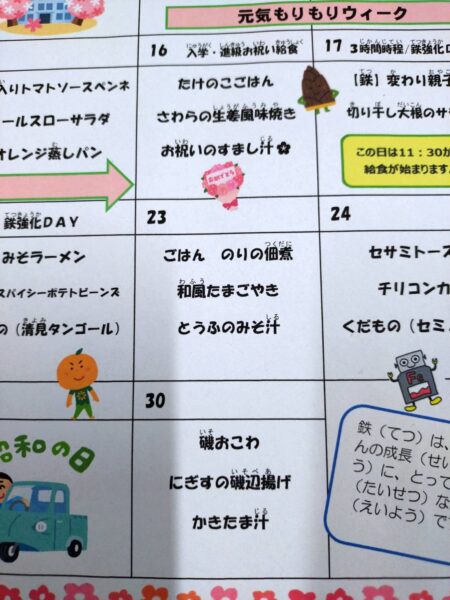 元気もりもりウィーク
16 入学・進級お祝い給食
17 3時間時程/鉄強化D
入りトマトソースペンネ
たけのこごはん
【鉄】変わり親子
ールスローサラダ
さわらの生姜風味焼き
切り干し大根のサ
オレンジ蒸しパン
お祝いのすまし汁
この日は11：30か
給食が始まります
おめでとう
鉄強化DAY
23
24
みそラーメン
ごはん のりの佃煮
セサミトース
スパイシーポテトビーンズ
和風たまごやき
チリコンカ
の（清見タンゴール）
とうふのみそ汁
くだもの（セミ
Fe
30
昭和の日
磯おこわ
にぎすの磯辺揚げ
かきたま汁
鉄（てつ）は、
んの成長（せい
う）に、とって
（たいせつ）な
（えいよう）で